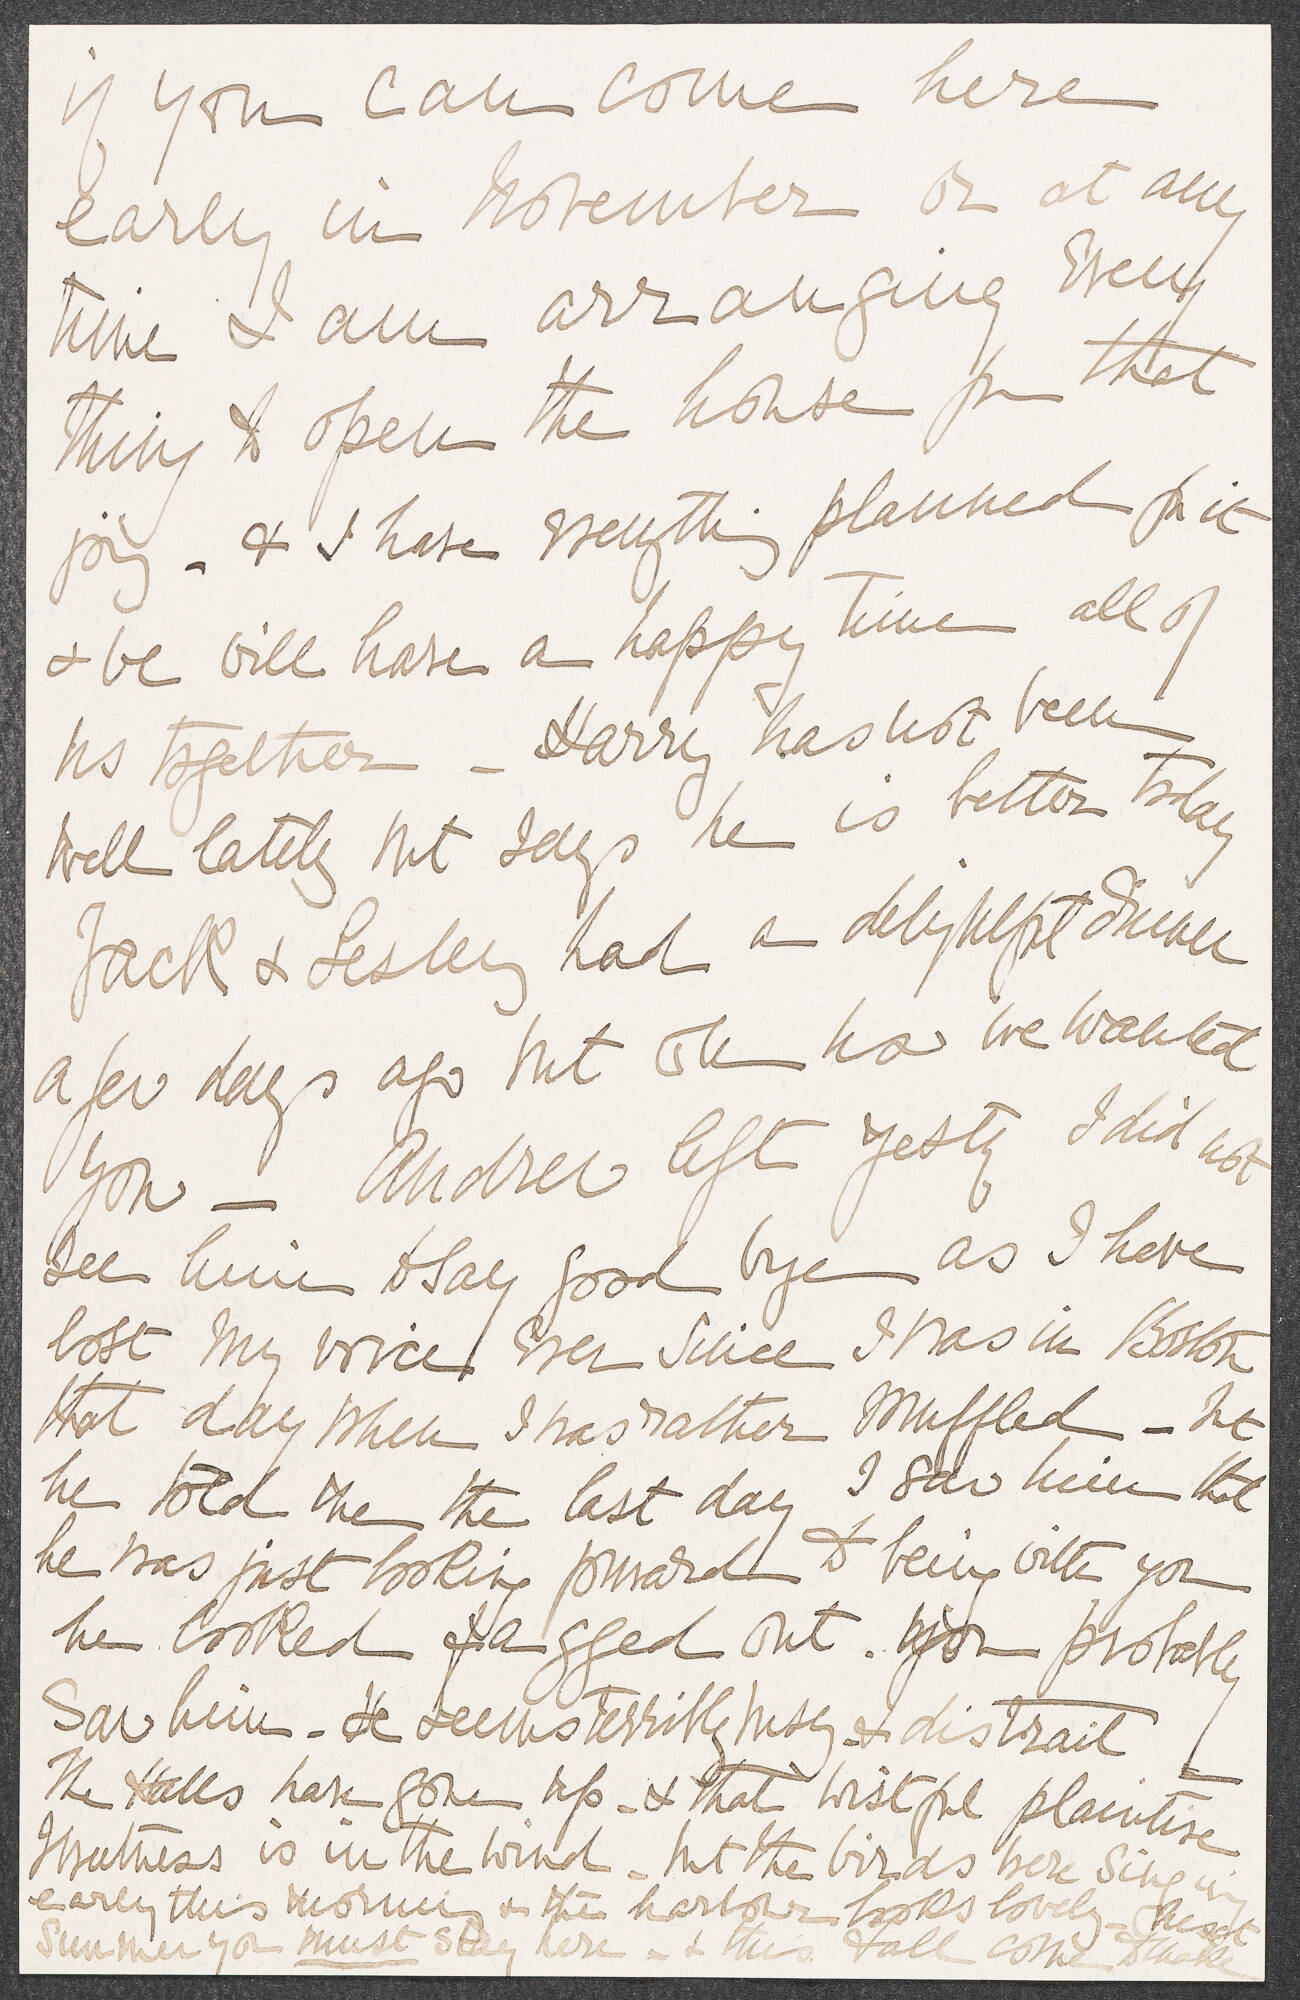 if you can come here
early in November or at any
time I am arranging every
thing to open the house for that
joy - & I have everything planned for it
& we will have a happy time all of
us together - Harry has not been
well lately but says he is better today
Jack & Lesley had a delightful dinner
a few days ago but oh how we wanted
you - Andrew left yesty I did not
see him to say good bye as I have
lost my voice ever since I was in Boston
that day when I was rather muffled - but
he told me the last day I saw him that
he was just looking forward to being with you
he looked fagged out. you probably
saw him - He seems terribly busy & distrait
The Halls have gone up - & that wistful plaintive
is in the wind - but the birds were singing
early this morning & the harbour looks lovely - Next
Summer you must stay here - & this Fall come